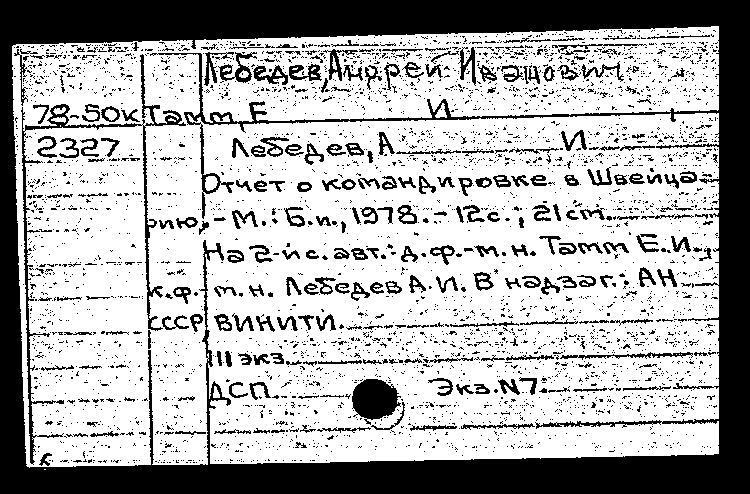 Лебедев, Андрей Иванович
78-50к Тамм, Е И
2327 Лебедев, А И
Отчет о командировке в Швейца-
рию. - М.: Б.и., 1978. - 12с.; 21cm.
На 2-й с. авт.: д.ф.-м.н. Тамм Е.И.,
к.ф.-м.н. Лебедев А.И. В надзаг.: АН
СССР, ВИНИТИ.
III экз.
ДСП. Экз. N7.